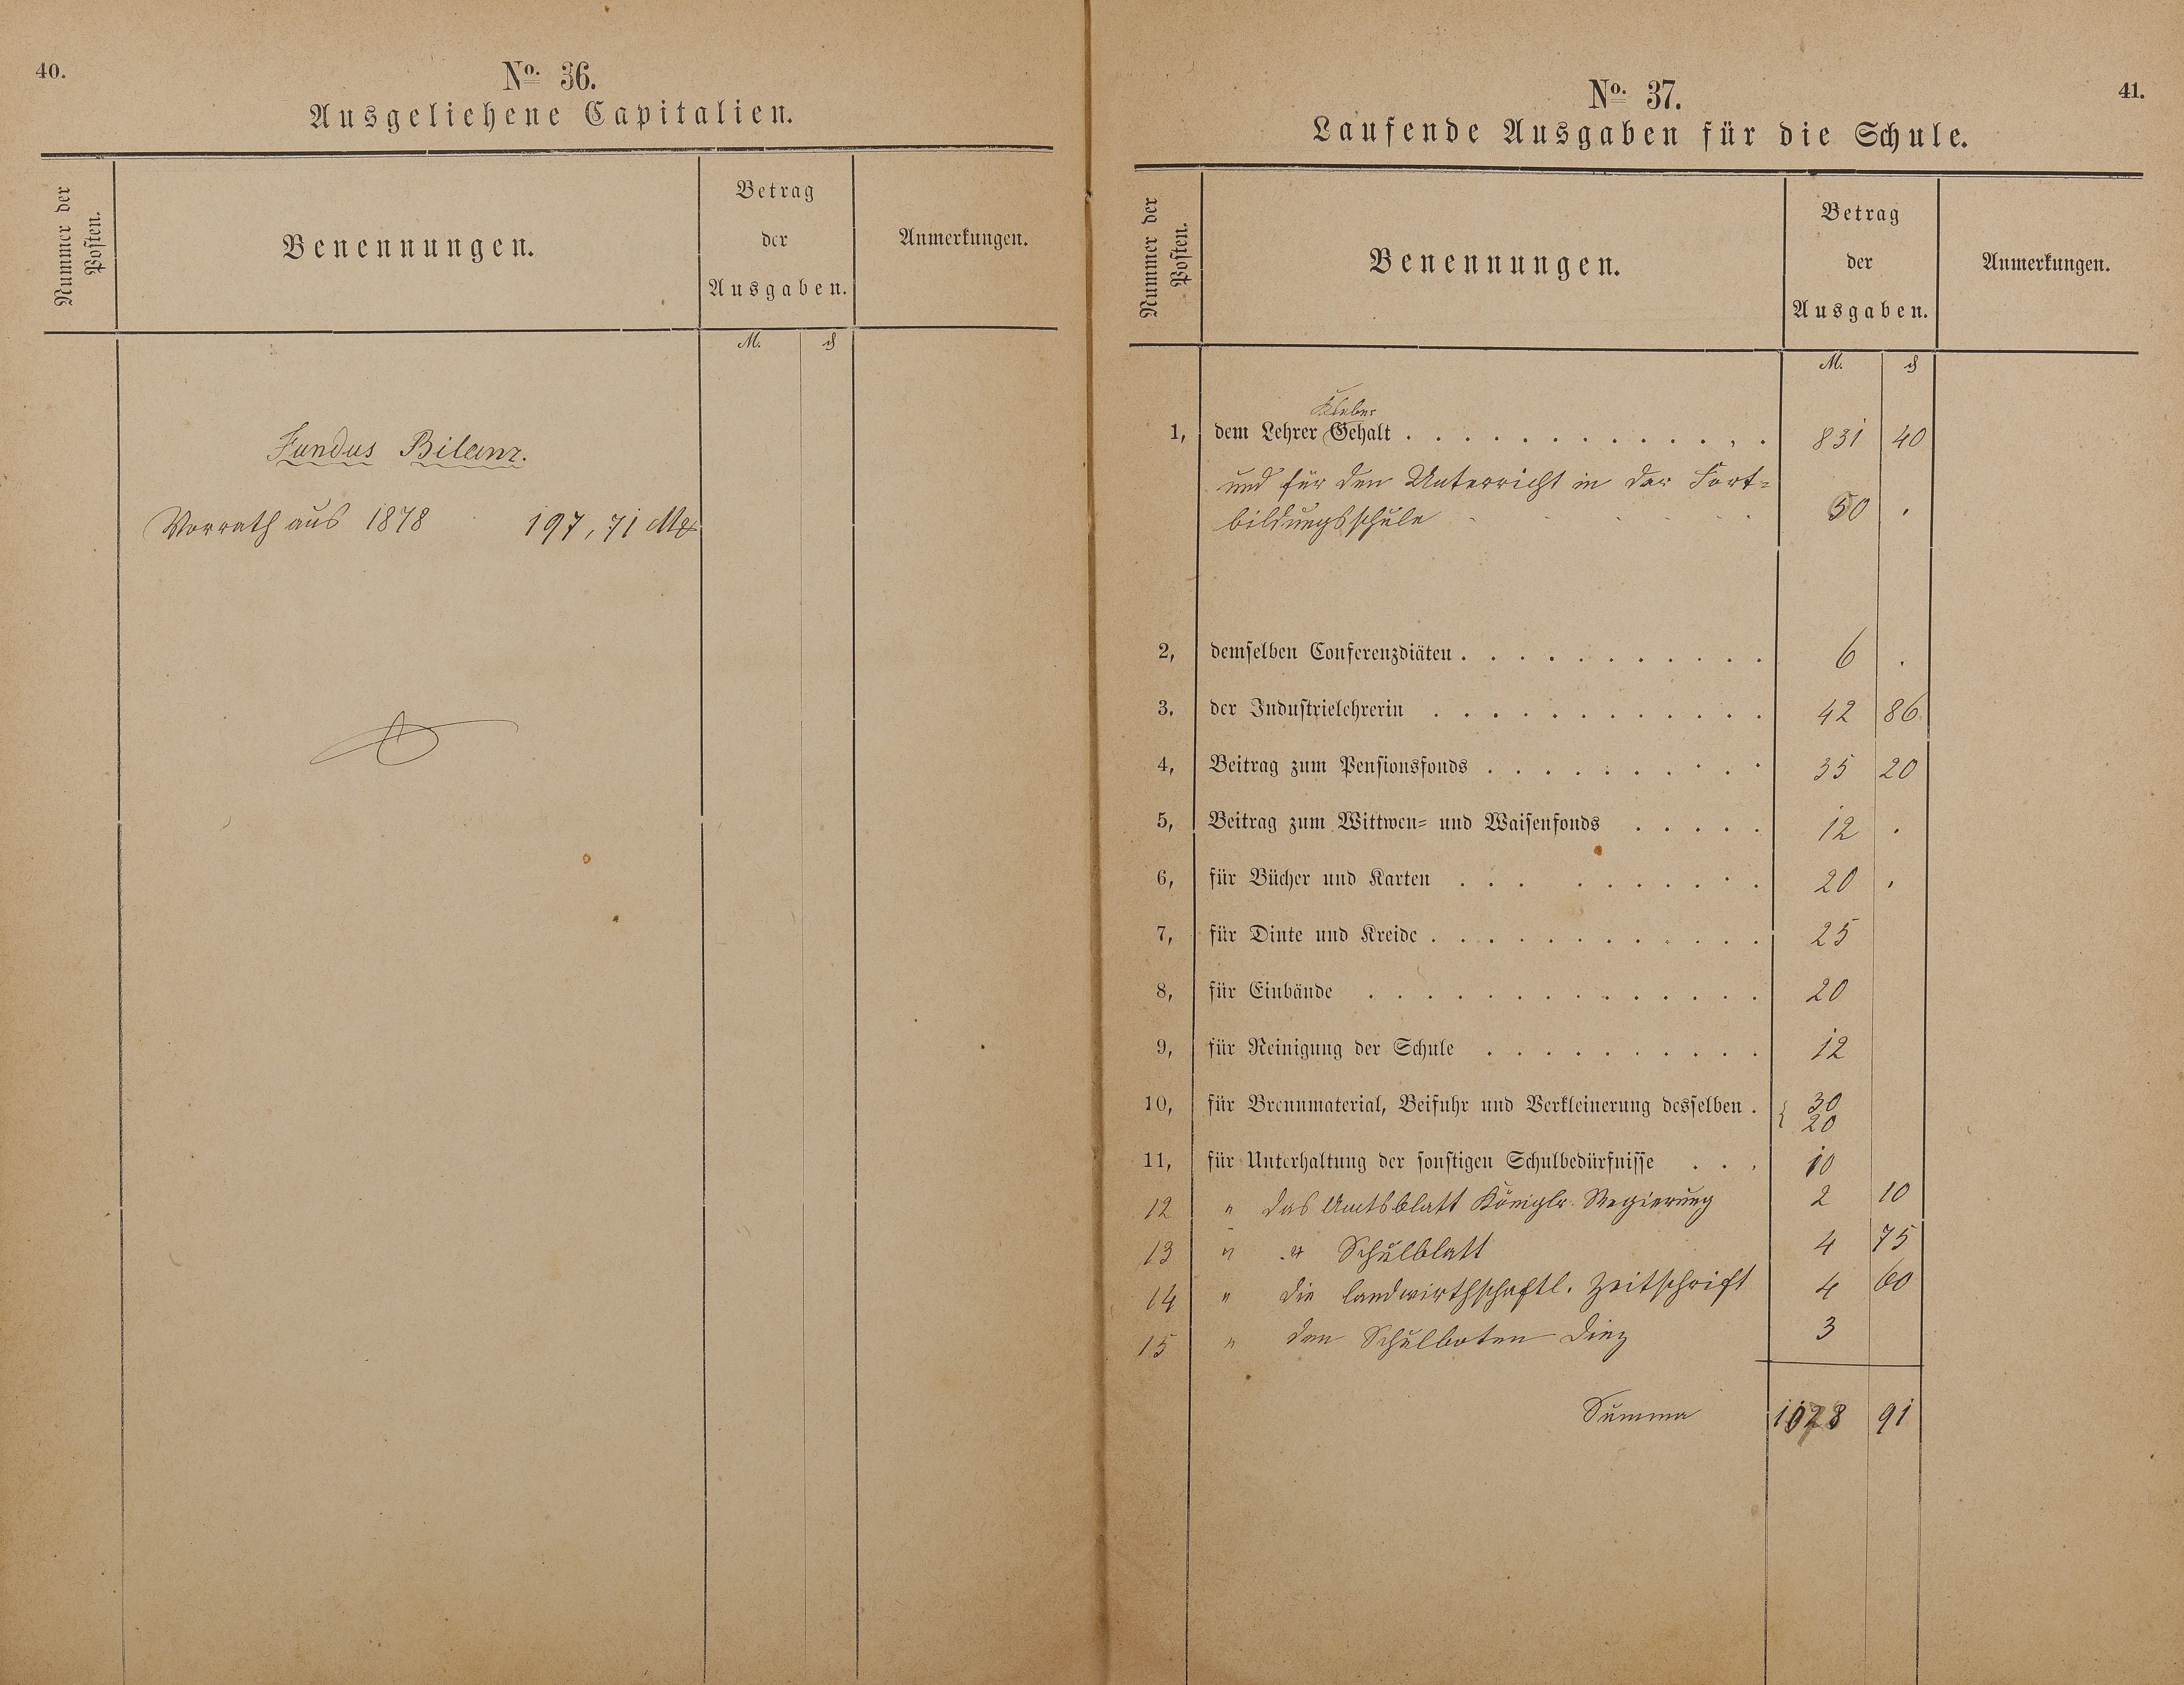 40.
No. 36.
Ausgeliehene Capitalien.
Nummer der Posten.
Benennungen.
Betrag der Ausgaben.
Anmerkungen.
M. ₰
Fundus Bilanz.
Vorrath aus 1878 197,71 Mk
41.
No. 37.
Laufende Ausgaben für die Schule.
Nummer der Posten.
Benennungen.
Betrag der Ausgaben.
Anmerkungen.
M. ₰
Kleber
1, dem Lehrer Gehalt . . . . . . . . . . . . . 831 40
und für den Unterricht in der Fort=
bildungsschule . . . . . . 50 .
2, demselben Conferenzdiäten . . . . . . . . . . . 6 .
3. der Industrielehrerin . . . . . . . . . . . . 42 86
4, Beitrag zum Pensionsfonds . . . . . . . . . . 35 20
5, Beitrag zum Wittwen= und Waisenfonds . . . . . 12 .
6, für Bücher und Karten . . . . . . . . . . 20 .
7, für Dinte und Kreide . . . . . . . . . . . . 25
8, für Einbände . . . . . . . . . . . . . . 20
9, für Reinigung der Schule . . . . . . . . . . 12
10, für Brennmaterial, Beifuhr und Verkleinerung desselben . { 30
20
11, für Unterhaltung der sonstigen Schulbedürfnisse . . . 10
12 " das Amtsblatt Königlr. Regierung 2 10
13 " " Schulblatt 4 75
14 " die landwirthschaftl. Zeitschrift 4 60
15 " den Schulboten Diez 3
Summa 91